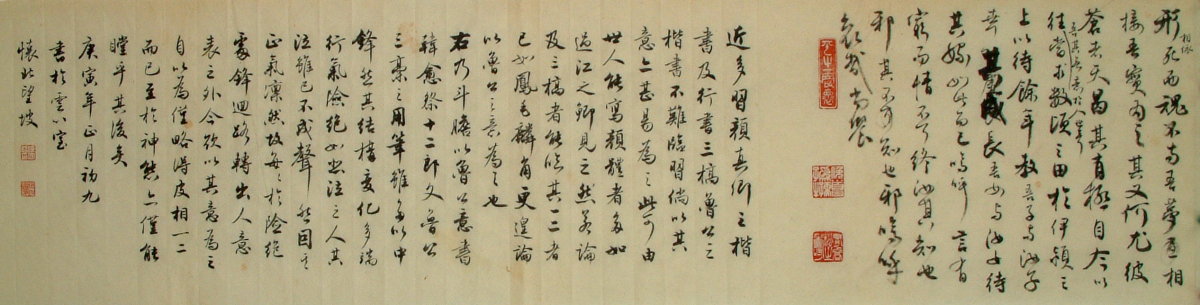 形死而魂不與吾夢相
相依
接吾實為之其又何尤彼
蒼者天曷其有極自今以
吾其無意於人世矣
往當求數頃之田於伊潁之
上以待餘年教吾子與汝子
幸其成長吾女與汝女待
其嫁如此而已嗚呼言有
窮而情不可終汝其知也
邪其不知也邪嗚呼
哀哉尚饗
近多習顏真卿之楷
書及行書三稿魯公之
楷書不難臨習倘以其
意亦甚易為之此可由
世人能寫顏體者多如
過江之鯽見之然若論
及三稿者能臨其一二者
已如鳳毛麟角更遑論
以魯公之意為之也
右乃斗膽以魯公意書
韓愈祭十二郎文魯公
三稿之用筆雖多以中
鋒然其結構變化多端
行氣險絕如悲泣之人其
泣雖已不成聲然因其
正氣凜然故每每於險絕
處鋒迴路轉出人意
表之外今欲以其意為之
自以為僅略得皮相一二
而已至於神態亦僅能
瞠乎其後矣
庚寅年正月初九
書於雲水室
懷北望坡